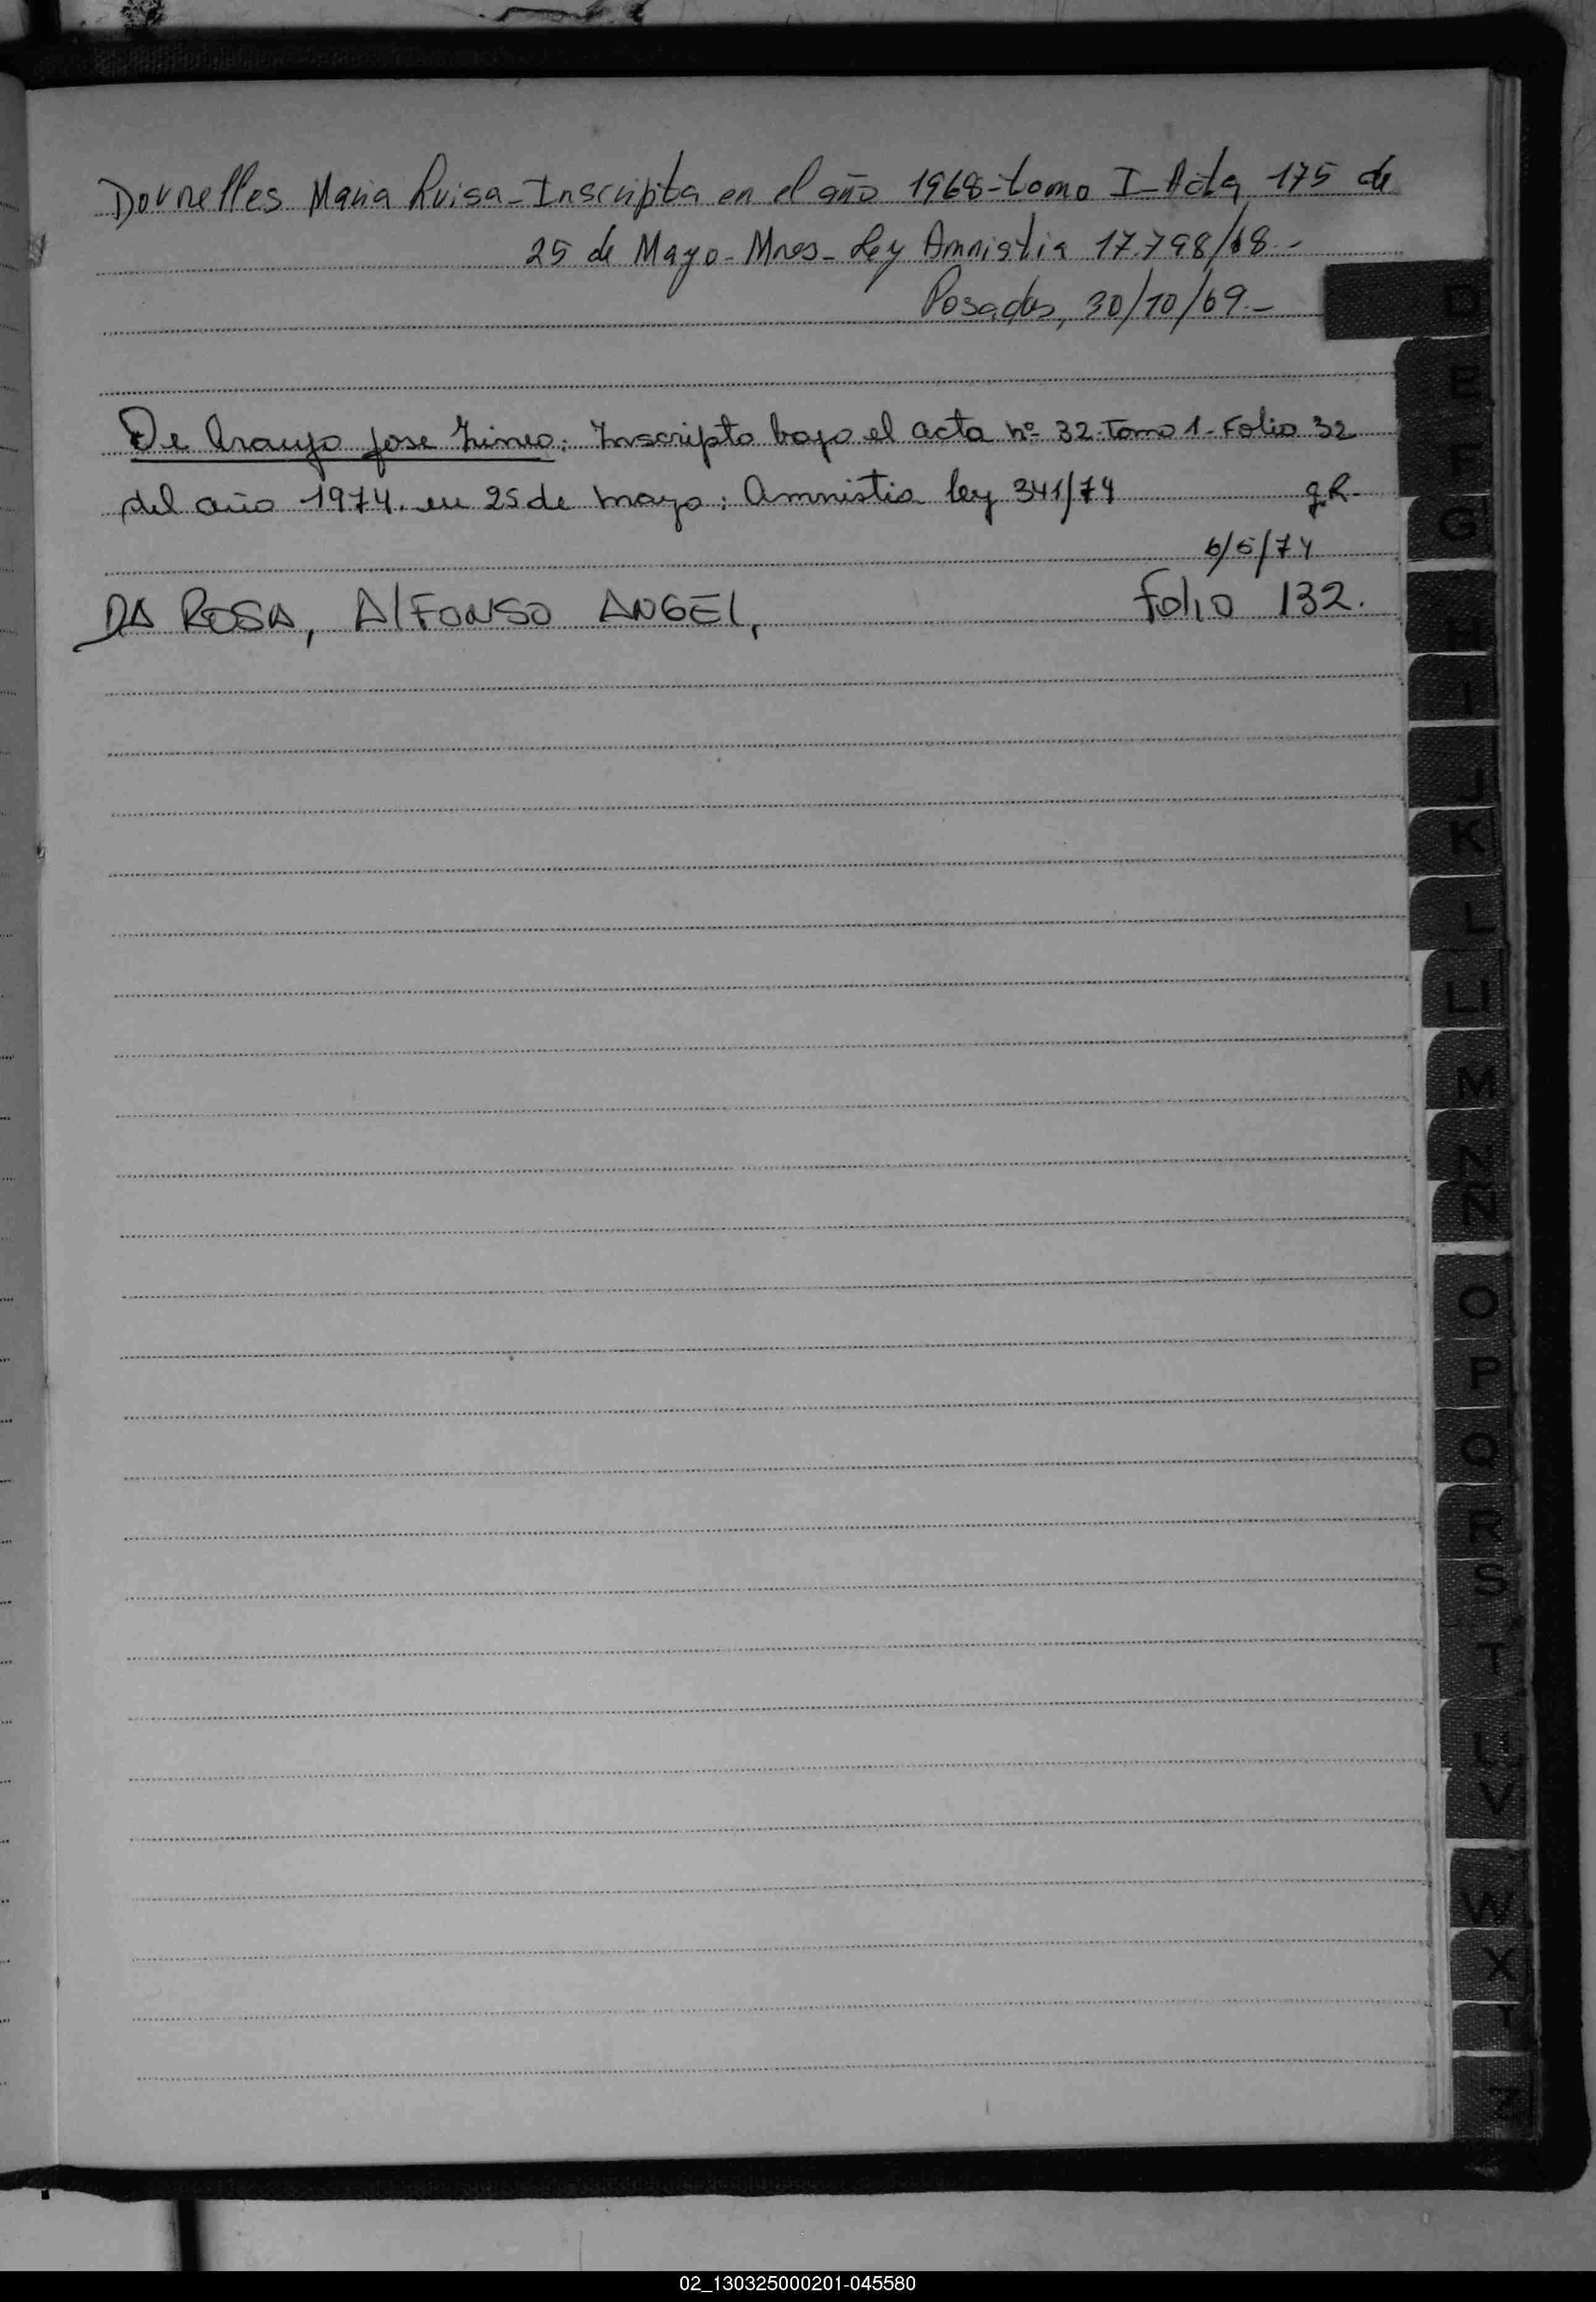 Dornelles Maria Luisa - Inscripta en el año 1968 - tomo I - Acta 175 de
25 de Mayo - Mnes - Ley Amnistia 17.798/68 -
Posadas, 30/10/69 -
De Araujo Jose : Inscripto bajo el acta nº 32. Tomo 1 - Folio 32
del año 1974. en 25 de mayo : Amnistia ley 341/74 g.R.
6/5/74
DA ROSA, AlFONSO ANGEl, Folio 132.
D
E
F
G
H
I
J
K
L
LL
M
N
Ñ
O
P
Q
R
S
T
U
V
W
X
Z
02_130325000201-045580